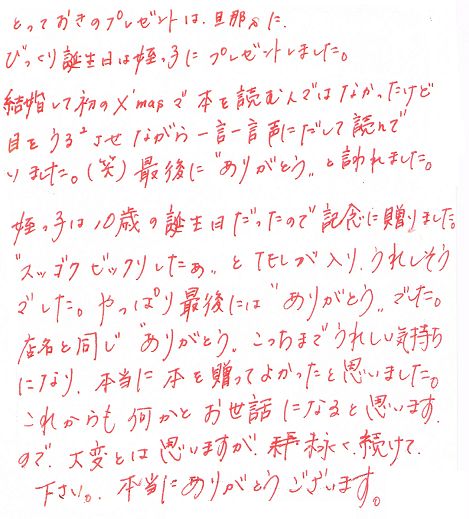 とっておきのプレゼントは、旦那さんに、
びっくり誕生日は姪っ子にプレゼントしました。
結婚して初のX'masで本を読む人ではなかったけど
目をうるうるさせながら一言一言声にだして読んで
いました。(笑)最後に"ありがとう"と言われました。
姪っ子は10歳の誕生日だったので記念に贈りました。
"スッゴクビックリしたぁ"とTELが入り、うれしそう
でした。やっぱり最後には"ありがとう"でした。
店名と同じ"ありがとう"こっちまでうれしい気持ち
になり、本当に本を贈ってよかったと思いました。
これからも何かとお世話になると思います
ので、大変とは思いますが、末永く続けて
下さい。本当にありがとうございます。